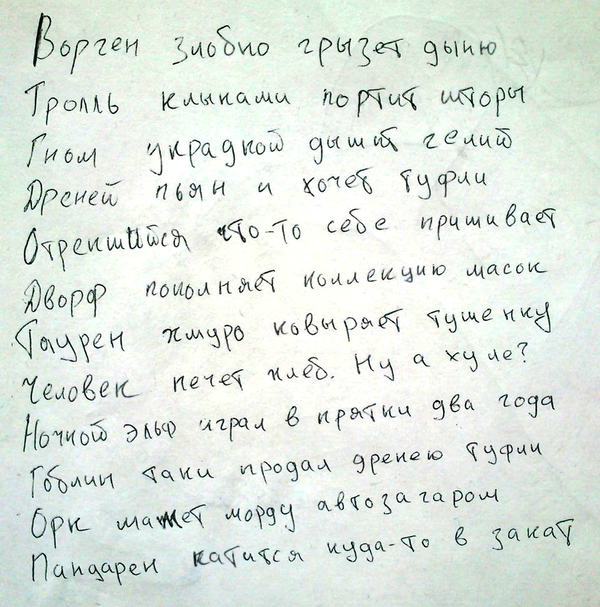 Ворген злобно грызет дыню
Тролль клыками портит шторы
Гном украдкой дышит гелий
Дреней пьян и хочет туфли
Отрекшийся что-то себе пришивает
Дворф пополняет коллекцию масок
Таурен хмуро ковыряет тушенку
Человек печет хлеб. Ну а хуле?
Ночной эльф играл в прятки два года
Гоблин таки продал дренею туфли
Орк мажет морду автозагаром
Пандарен катится куда-то в закат